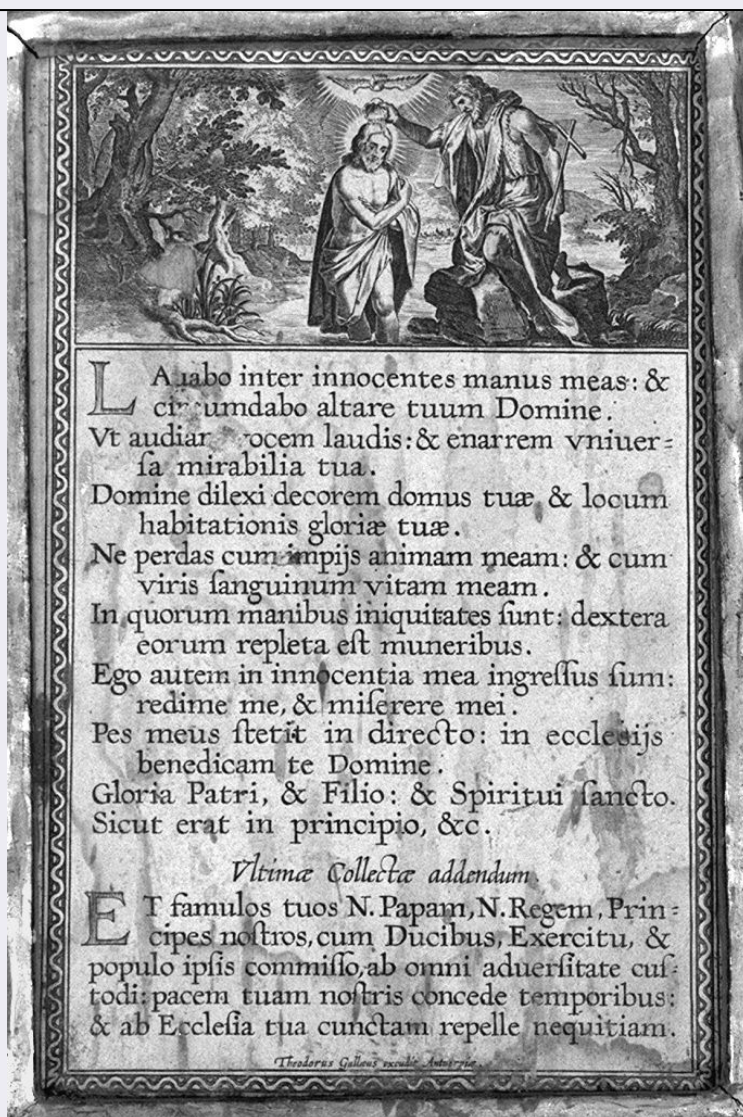 LAuabo inter innocentes manus meas: &
circumdabo altare tuum Domine.
Vt audiar vocem laudis: & enarrem vniuer=
ſa mirabilia tua.
Domine dilexi decorem domus tuæ, & locum
habitationis gloriæ tuæ.
Ne perdas cum impijs animam meam: & cum
viris ſanguinum vitam meam.
In quorum manibus iniquitates ſunt: dextera
eorum repleta eſt muneribus.
Ego autem in innocentia mea ingreſſus ſum:
redime me, & miſerere mei.
Pes meus ſtetit in directo: in eccleſijs
benedicam te Domine.
Gloria Patri, & Filio: & Spiritui ſancto.
Sicut erat in principio, &c.
Vltimæ Collectæ addendum.
ET famulos tuos N. Papam, N. Regem, Prin=
cipes noſtros, cum Ducibus, Exercitu, &
populo ipſis commiſſo, ab omni aduerſitate cuſ=
todi: pacem tuam noſtris concede temporibus:
& ab Eccleſia tua cunctam repelle nequitiam.
Theodorus Gallæus excudit Antuerpiæ.